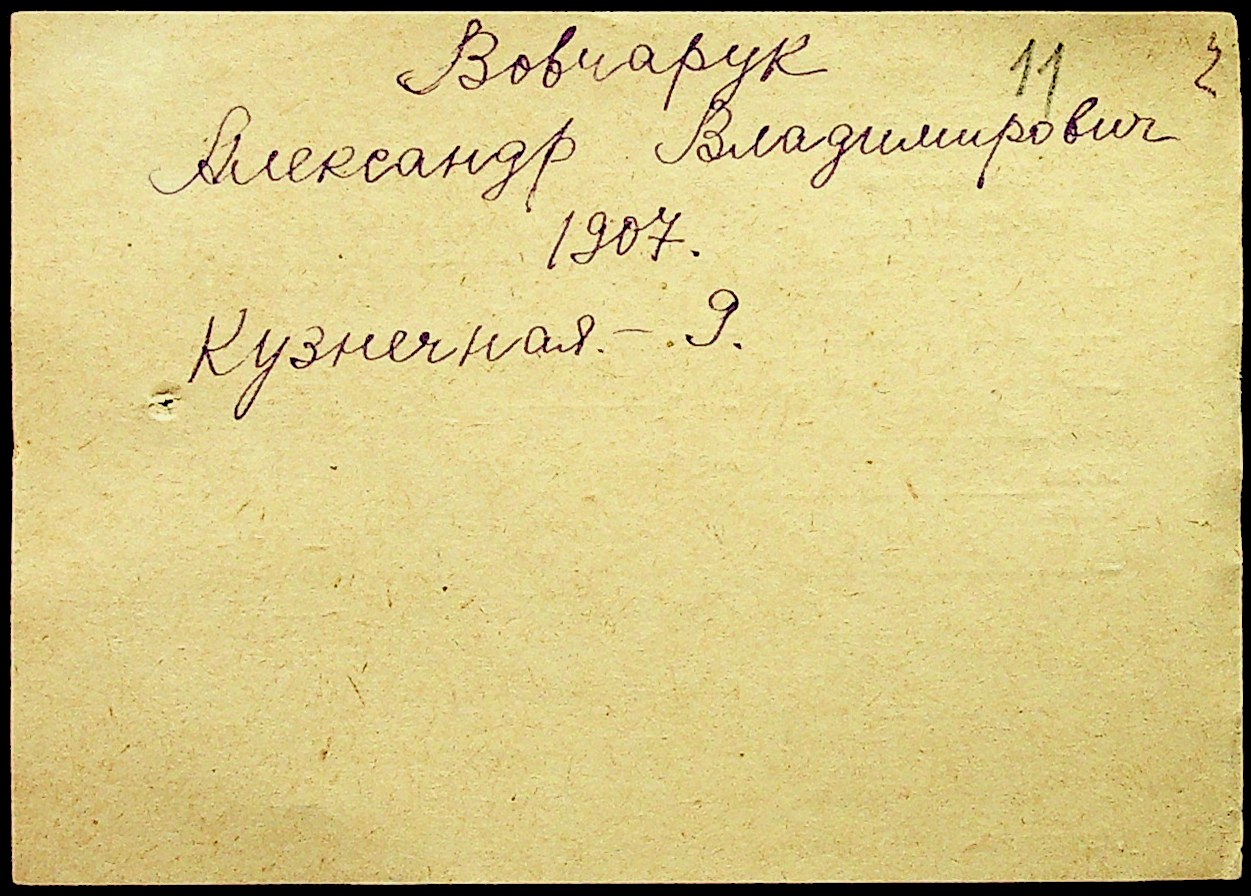 Вовчарук 11
Александр Владимирович
1907.
Кузнечная. – 9.